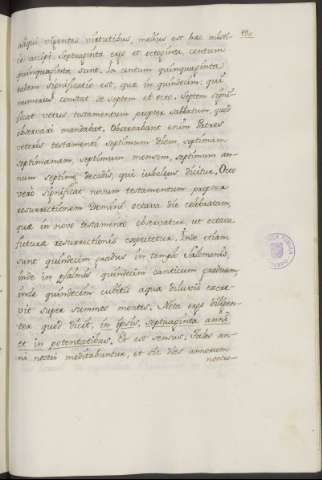 atqui vigentes virtutibus, melius est hæc misti-
ce accipi. Septuaginta ergo et octoginta, centum
quinquaginta sunt. In centum quinquaginta
talem significatio est, quæ in quindecim: qui
numerus constat de septem et octo. Septem signi-
ficat vetus testamentum propter sabbatum quod
observari mandabat. Observabant enim Patres
veteris testamenti septimum diem, septimam
septimanam, septimum mensem, septimum an-
num septimæ decadis, qui iubilæus dicitur. Octo
vero significat novum testamentum propter
resurrectionem Domini octava die celebratam,
quæ in novo testamento observatur, ut octava
futuræ resurrectionis cogitetur. Inde etiam
sunt quindecim gradus in templo Salomonis,
inde in psalmis quindecim canticum graduum,
inde quindecim cubitis aqua diluvii exce-
vit super summos montes. Nota ergo diligen-
ter quod dicit, in ipsis, septuaginta anni
et in potentatibus. Et est sensus. Tales an-
ni nostri meditabuntur, et hi dies annorum
nostro-